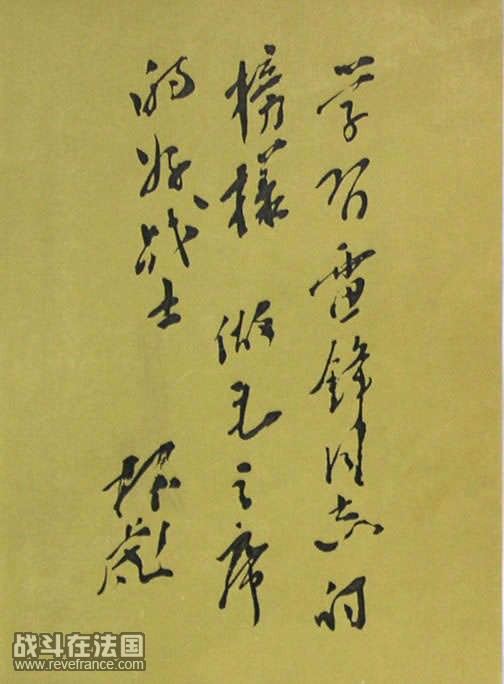 学习雷鋒同志的
榜樣 做毛主席
的好战士
林彪
战斗在法国
www.revefrance.com